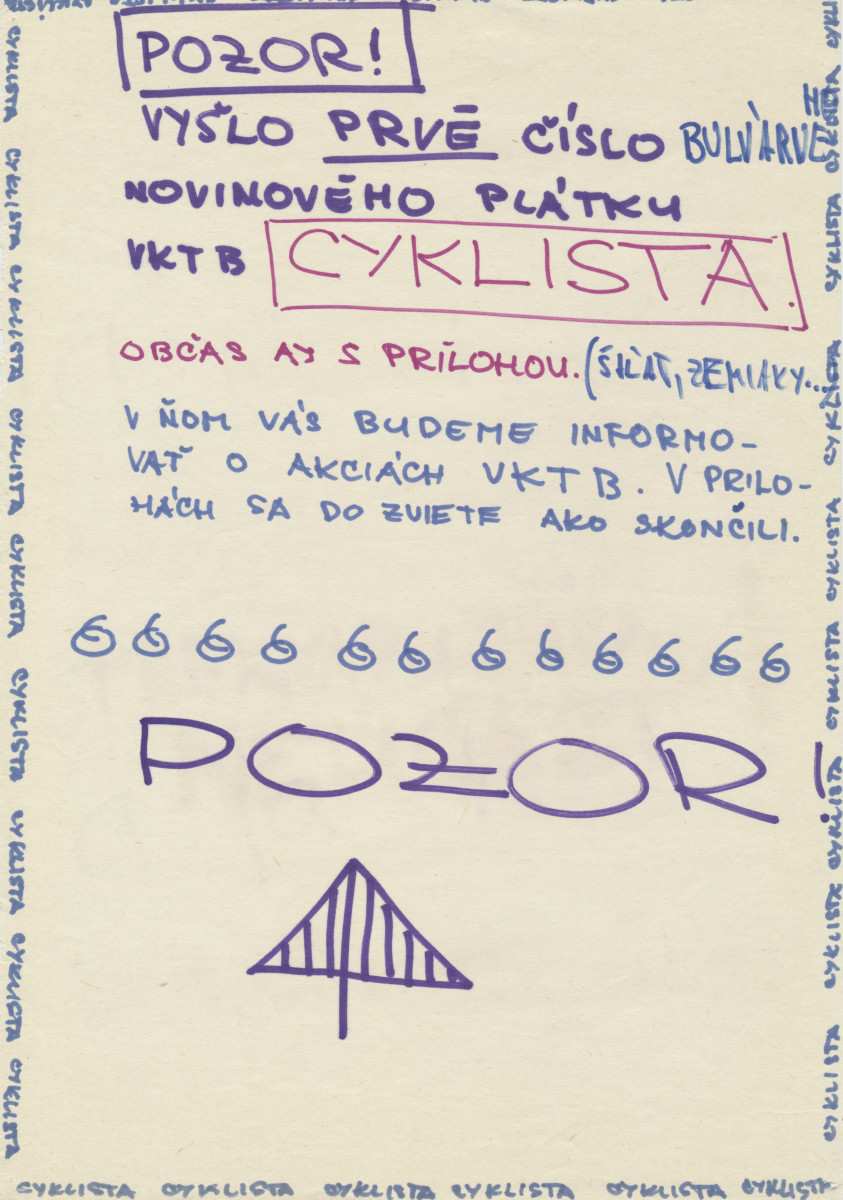 POZOR!
VYŠLO PRVÉ ČÍSLO BULVÁRNEHO
NOVINOVÉHO PLÁTKU
VKTB CYKLISTA.
OBČAS AJ S PRÍLOHOU. (ŠALÁT, ZEMIAKY...)
V ŇOM VÁS BUDEME INFORMO-
VAŤ O AKCIÁCH VKTB. V PRÍLO-
HÁCH SA DO ZVIETE AKO SKONČILI.
6 6 6 6 6 6 6 6 6 6 6 6
POZOR!
CYKLISTA CYKLISTA CYKLISTA CYKLISTA CYKLISTA CYKLISTA CYKLISTA CYKLISTA CYKLISTA
CYKLISTA CYKLISTA CYKLISTA CYKLISTA CYKLISTA CYKLISTA
CYKLISTA CYKLISTA CYKLISTA CYKLISTA CYKLISTA CYKLISTA CYKLISTA CYKLISTA CYKLISTA CYKLISTA CYKLISTA